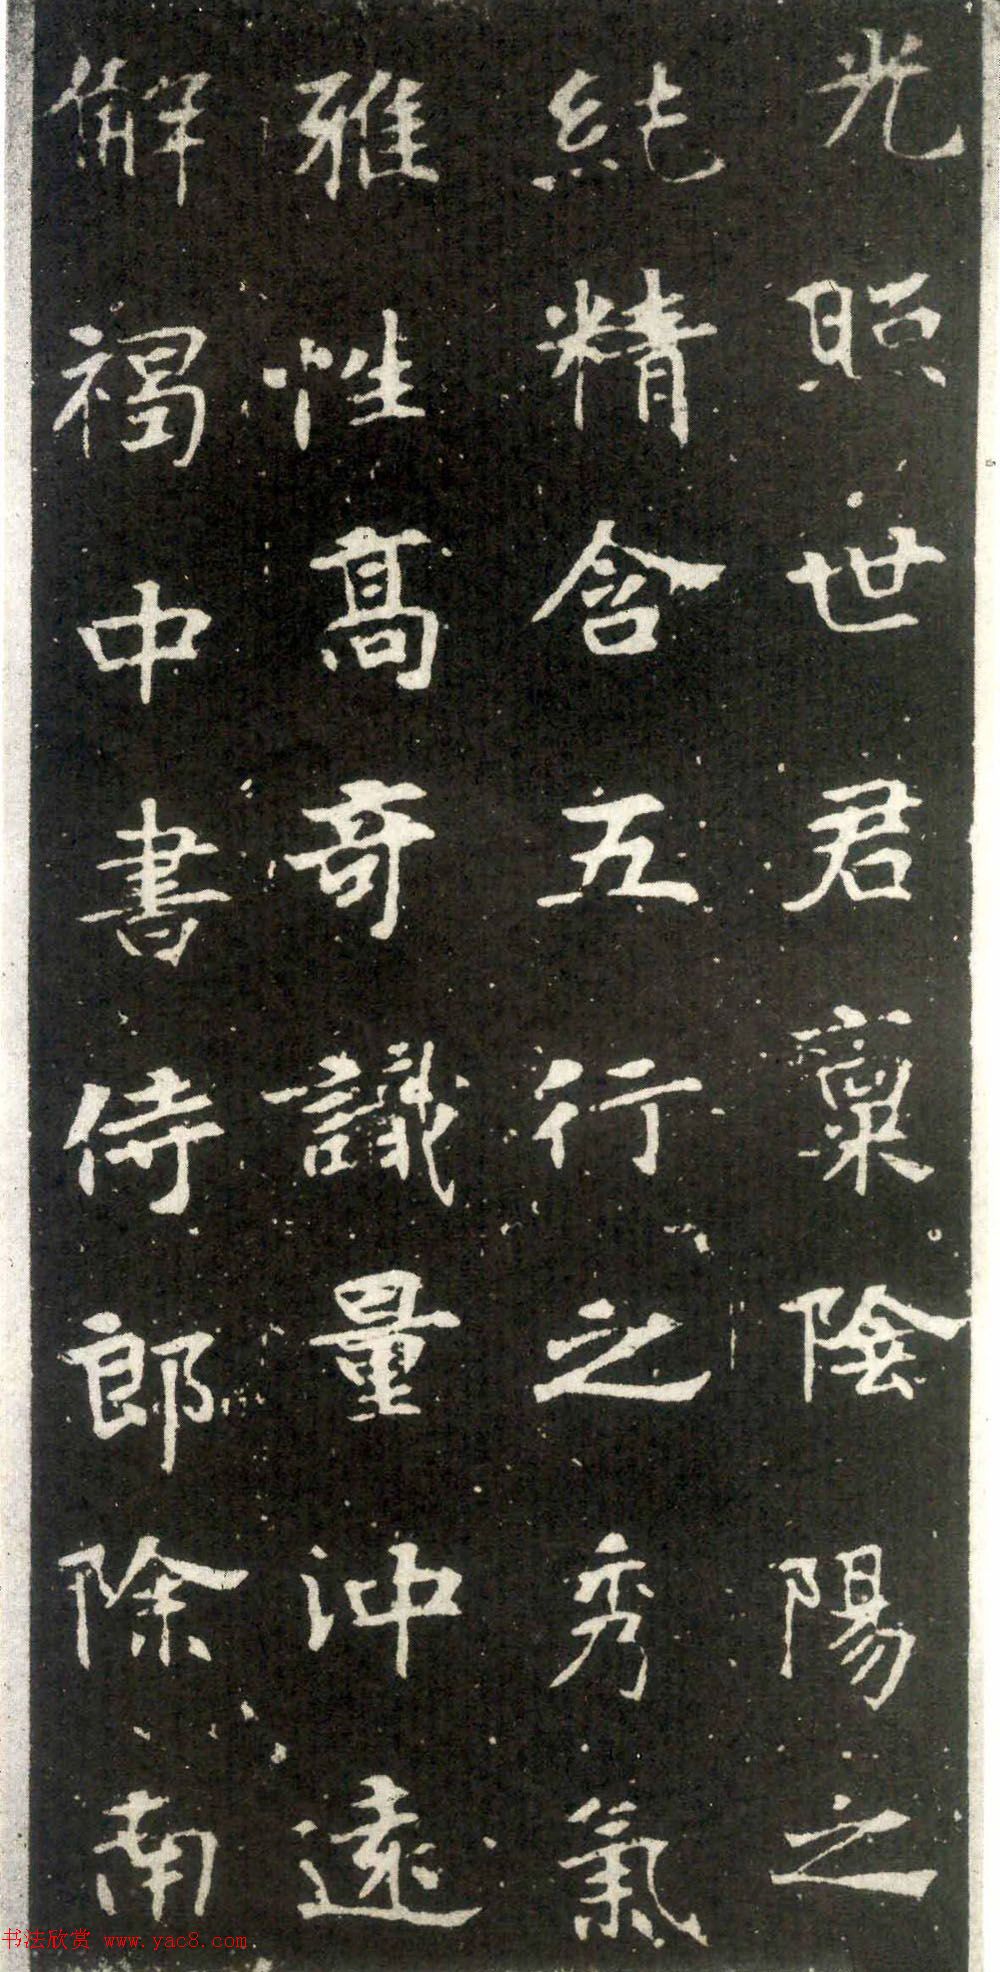 光照世君稟陰陽之
純精含五行之秀氣
雅性高奇識量沖遠
解褐中書侍郎除南
书法欣赏 www.yac8.com